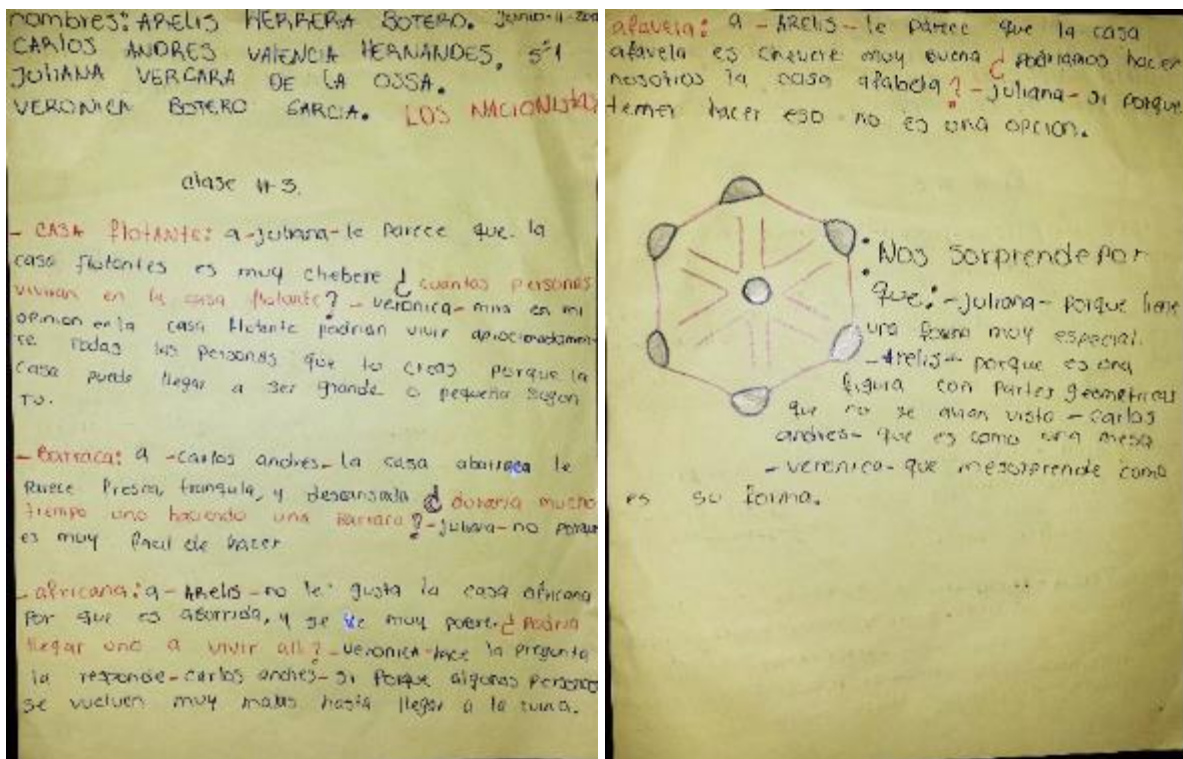 nombres: ARELIS HERRERA BOTERO. Junio-11-
CARLOS ANDRES VALENCIA HERNANDES. 5°1
JULIANA VERGARA DE LA OSSA.
VERONICA BOTERO GARCIA. LOS NACIONIStAS
clase #3.
- CASA flotANte: a-juliana-le parece que la
casa flotantes es muy chebere ¿ cuantas personas
vivirian en la casa flotante? - veronica- en mi
opinion en la casa flotante podrian vivir
todas las personas que tu creas porque la
casa puede llegar a ser grande o pequeña segun
TU.
- Barraca: a -carlos andres- la casa abarraca le
fresca, y descansada ¿ duraria mucho
tiempo uno haciendo una barraca? -juliana-no porque
es muy facil de hacer
- africana: a - ARELIS -no le gusta la casa africana
por que es aburrida, y se ve muy pobre ¿ podria
llegar uno a vivir alli? - veronica-hace la pregunta
la responde-carlos andres-si porque algunas personas
se vuelven muy malas hasta llegar a la ruina.
afavela: a - ARELIS - le parece que la casa
afavela es chevere muy buena ¿ podriamos hacer
nosotros la casa afabela? -juliana- si porque
temer hacer eso no es una opcion.
• Nos sorprende por
• que: -juliana- porque tiene
una forma muy especial.
-Arelis- porque es una
figura con partes geometricas
que no se avian visto - carlos
andres- que es como una mesa
- veronica- que mesorprende como
es su forma.